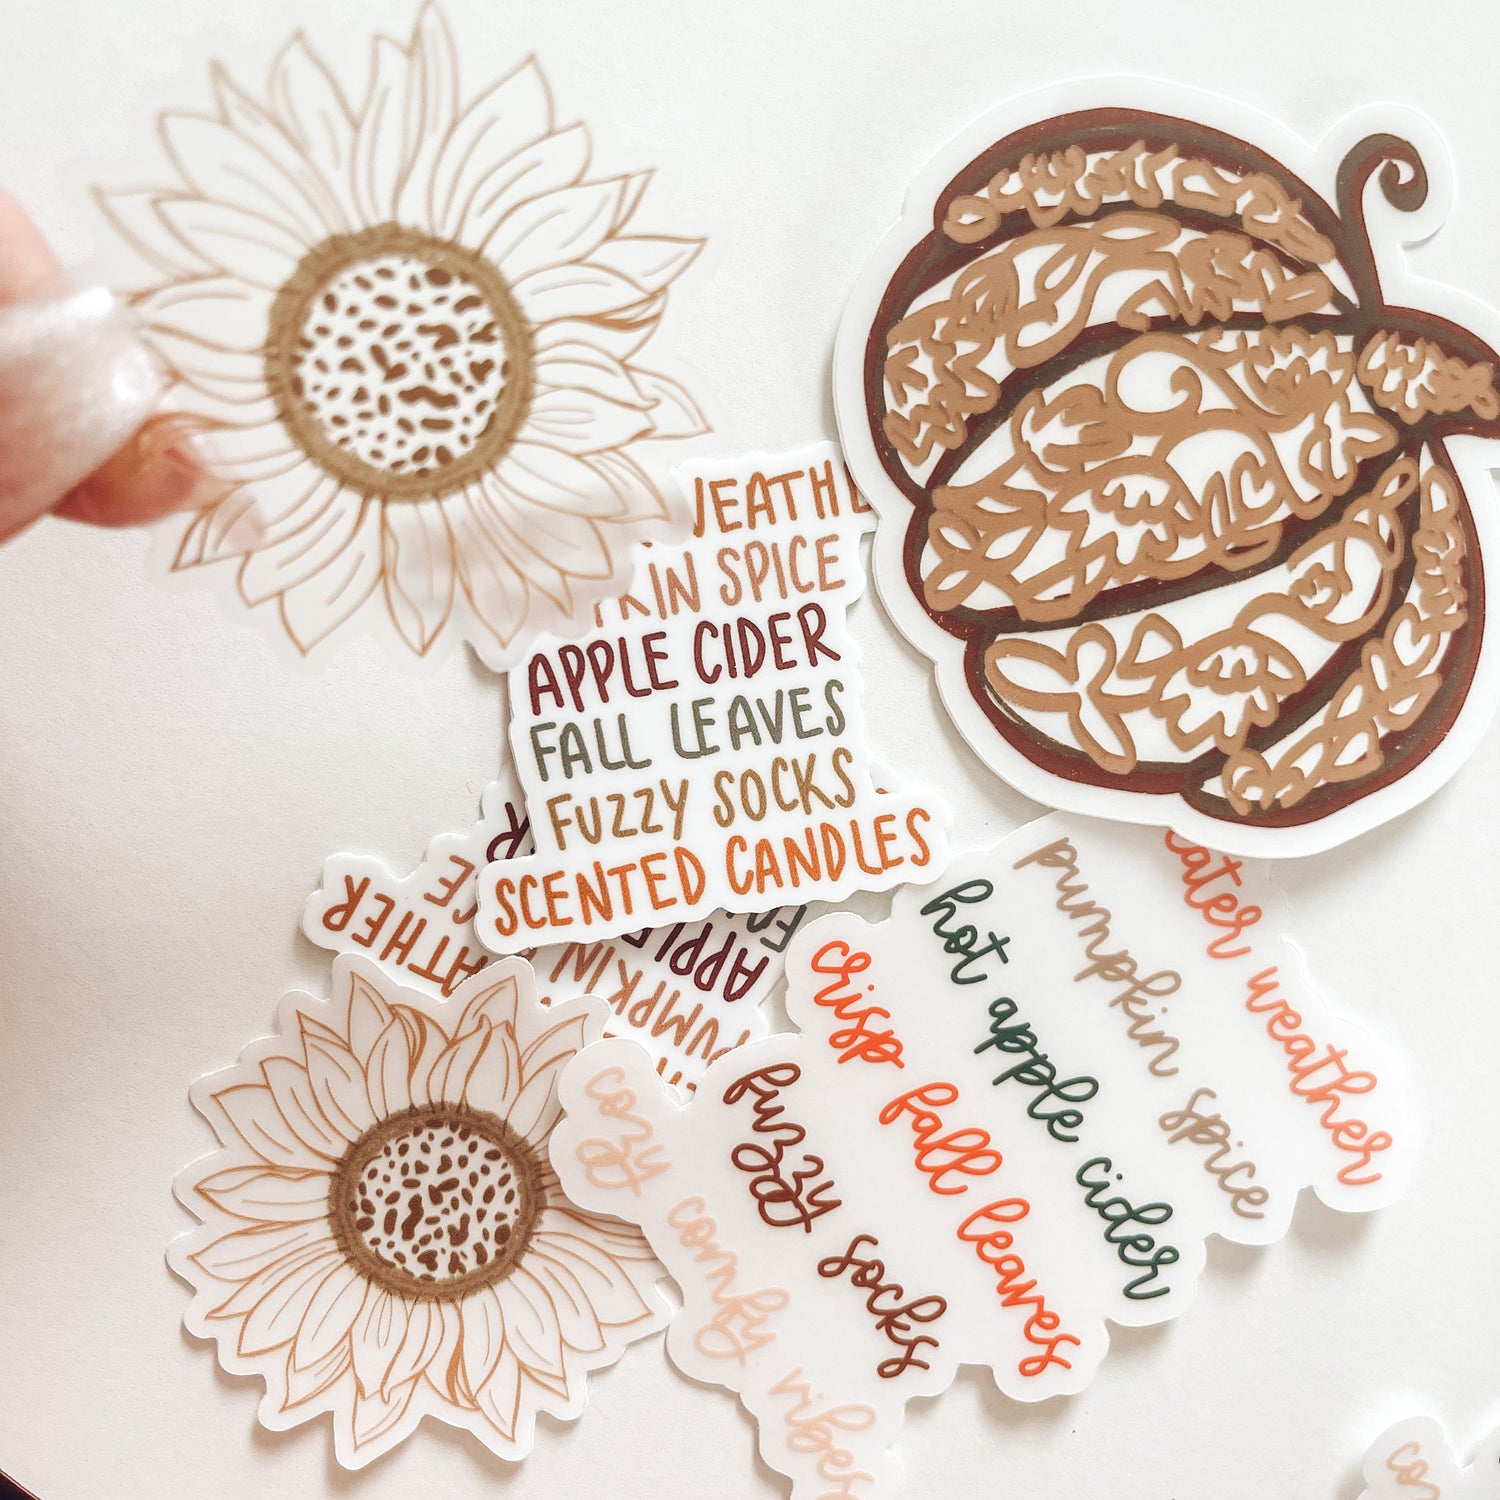 WEATHE
KIN SPICE
APPLE CIDER
FALL LEAVES
FUZZY SOCKS
SCENTED CANDLES
EATHER
ICE
R
ATHER
PUMPKIN
APPLE
FA
eater weather
pumpkin spice
hot apple cider
crisp fall leaves
fuzzy socks
cozy comfy vibes
co